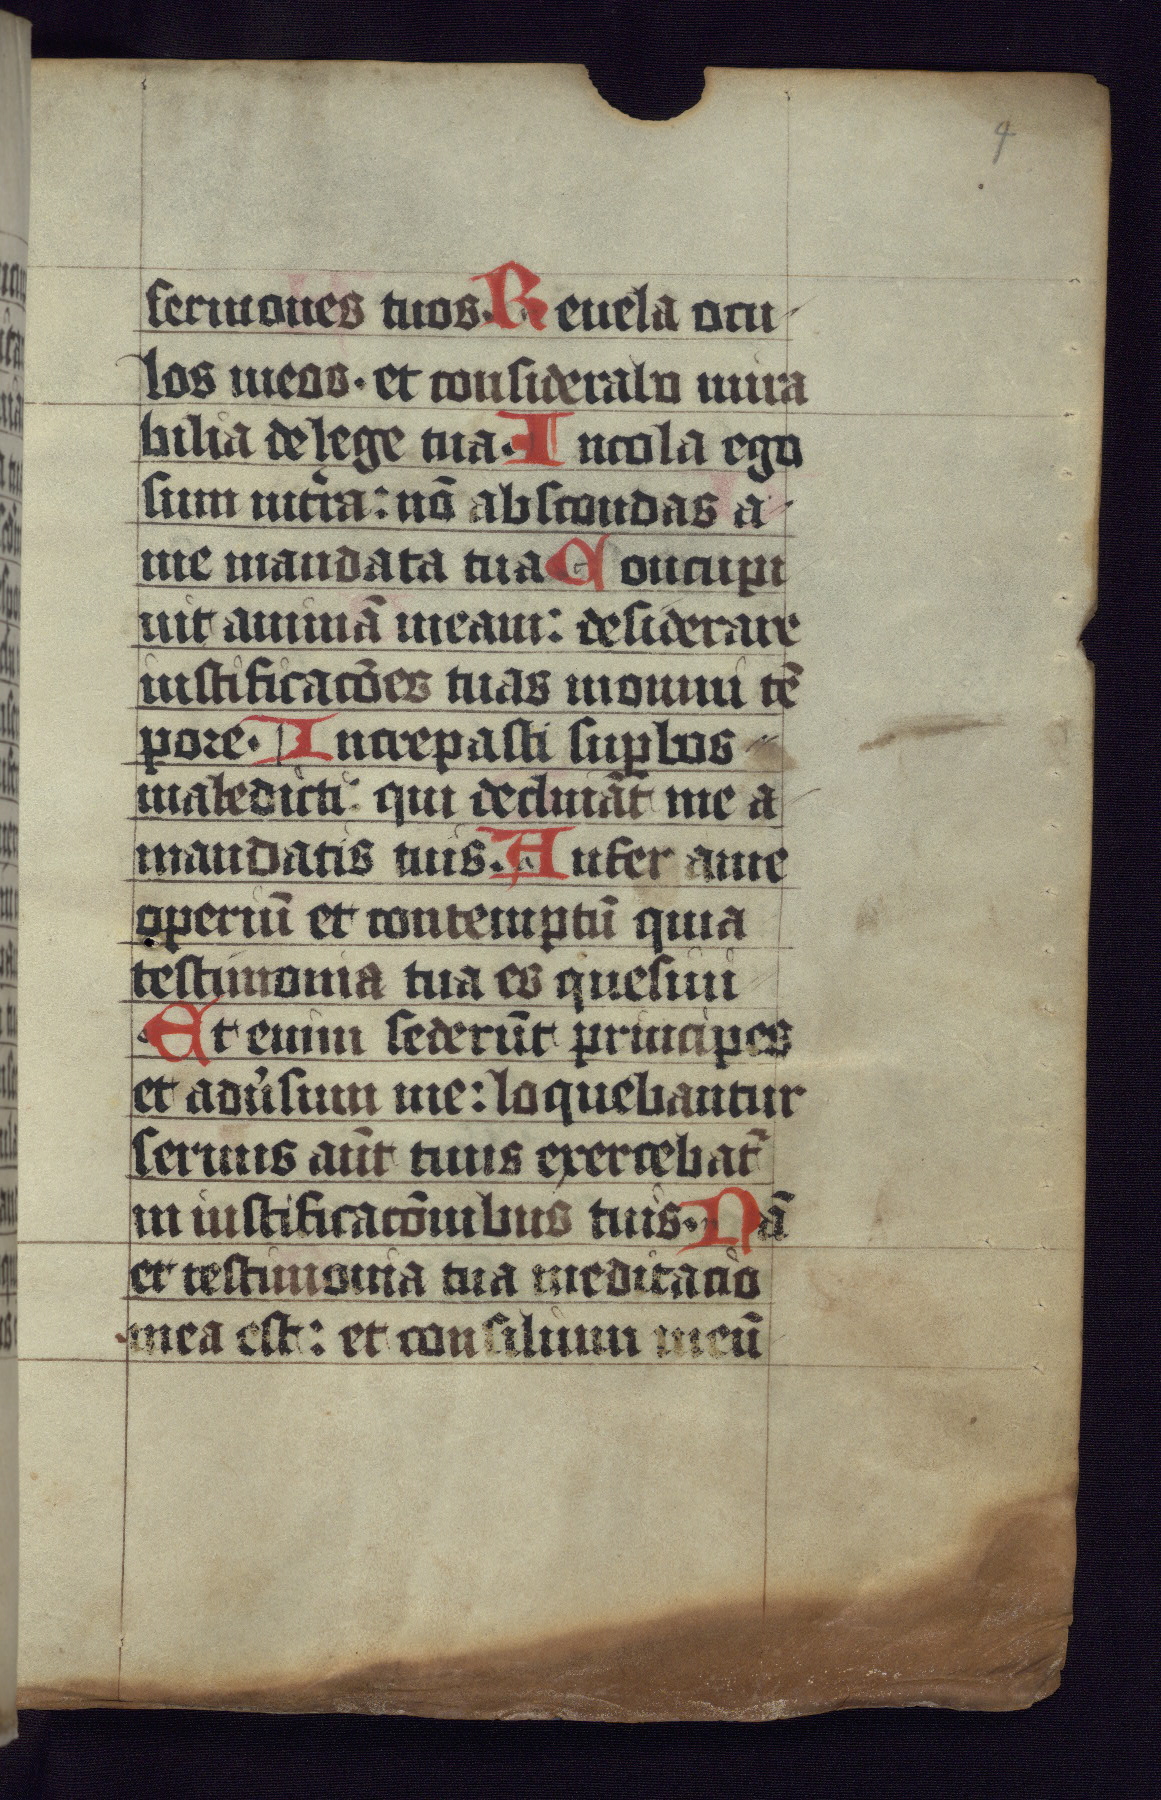 4
sermones tuos. Reuela ocu
los meos. et considerabo mira
bilia de lege tua. Incola ego
sum inťra: nō abscondas a
me mandata tua Concupi
uit animā meam: desiderare
iustificacōes tuas inomni tē
pore. Increpasti suꝑbos
maledicti: qui decliniāt me a
mandatis tuis. Aufer ame
operiū et contemptū quia
testimonia tua es quesiui
Et enim sederūt principes
et adůsum me: loquebantur
seruus aūt tuus exercebat᷑
in iustificacōnibus tuis. Nā
et testimonia tua meditacio
mea est: et consilium meū